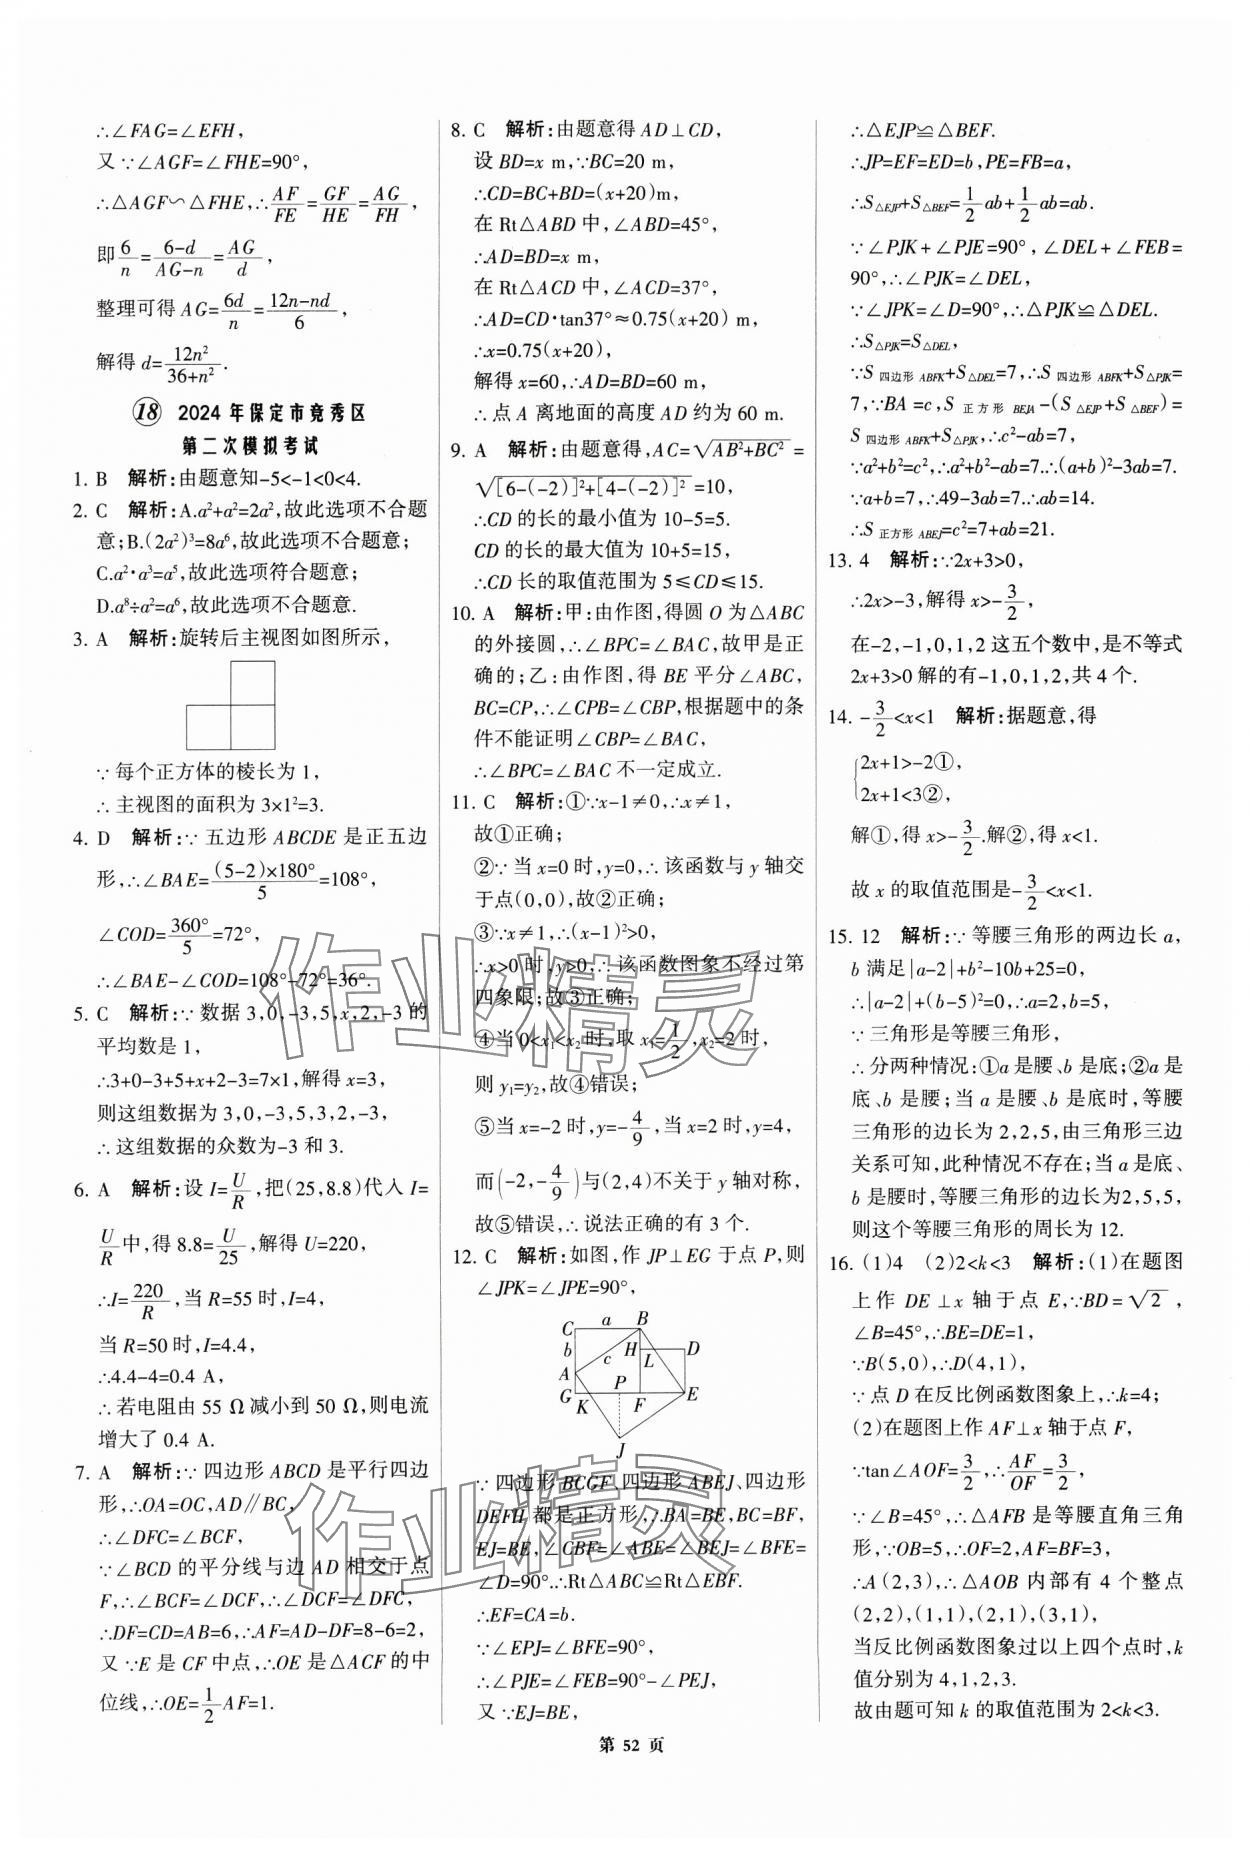 ∴∠FAG=∠EFH,
又∵∠AGF=∠FHE=90°,
∴△AGF∽△FHE,∴AF/FE=GF/HE=AG/FH,
即6/n=(6-d)/(AG-n)=AG/d,
整理可得AG=6d/n=(12n-nd)/6,
解得d=12n²/(36+n²).
⑱ 2024年保定市竞秀区
第二次模拟考试
1. B 解析:由题意知-5<-1<0<4.
2. C 解析:A.a²+a²=2a²,故此选项不合题
意;B.(2a²)³=8a⁶,故此选项不合题意;
C.a²·a³=a⁵,故此选项符合题意;
D.a⁸÷a²=a⁶,故此选项不合题意.
3. A 解析:旋转后主视图如图所示,
∵每个正方体的棱长为1,
∴主视图的面积为3×1²=3.
4. D 解析:∵五边形ABCDE是正五边
形,∴∠BAE=(5-2)×180°/5=108°,
∠COD=360°/5=72°,
∴∠BAE-∠COD=108°-72°=36°.
5. C 解析:∵数据3,0,-3,5,x,2,-3的
平均数是1,
∴3+0-3+5+x+2-3=7×1,解得x=3,
则这组数据为3,0,-3,5,3,2,-3,
∴这组数据的众数为-3和3.
6. A 解析:设I=U/R,把(25,8.8)代入I=
U/R中,得8.8=U/25,解得U=220,
∴I=220/R,当R=55时,I=4,
当R=50时,I=4.4,
∴4.4-4=0.4 A,
∴若电阻由55 Ω减小到50 Ω,则电流
增大了0.4 A.
7. A 解析:∵四边形ABCD是平行四边
形,∴OA=OC,AD∥BC,
∴∠DFC=∠BCF,
∵∠BCD的平分线与边AD相交于点
F,∴∠BCF=∠DCF,∴∠DCF=∠DFC,
∴DF=CD=AB=6,∴AF=AD-DF=8-6=2,
又∵E是CF中点,∴OE是△ACF的中
位线,∴OE=1/2AF=1.
8. C 解析:由题意得AD⊥CD,
设BD=x m,∵BC=20 m,
∴CD=BC+BD=(x+20)m,
在Rt△ABD中,∠ABD=45°,
∴AD=BD=x m,
在Rt△ACD中,∠ACD=37°,
∴AD=CD·tan37°≈0.75(x+20) m,
∴x=0.75(x+20),
解得x=60,∴AD=BD=60 m,
∴点A离地面的高度AD约为60 m.
9. A 解析:由题意得,AC=√(AB²+BC²)=
√([6-(-2)]²+[4-(-2)]²)=10,
∴CD的长的最小值为10-5=5.
CD的长的最大值为10+5=15,
∴CD长的取值范围为5≤CD≤15.
10. A 解析:甲:由作图,得圆O为△ABC
的外接圆,∴∠BPC=∠BAC,故甲是正
确的;乙:由作图,得BE平分∠ABC,
BC=CP,∴∠CPB=∠CBP,根据题中的条
件不能证明∠CBP=∠BAC,
∴∠BPC=∠BAC不一定成立.
11. C 解析:①∵x-1≠0,∴x≠1,
故①正确;
②∵当x=0时,y=0,∴该函数与y轴交
于点(0,0),故②正确;
③∵x≠1,∴(x-1)²>0,
∴x>0时,y>0,∴该函数图象不经过第
四象限;故③正确;
④当0<x₁<x₂时,取x₁=1/2,x₂=2时,
则y₁=y₂,故④错误;
⑤当x=-2时,y=-4/9,当x=2时,y=4,
而(-2,-4/9)与(2,4)不关于y轴对称,
故⑤错误,∴说法正确的有3个.
12. C 解析:如图,作JP⊥EG于点P,则
∠JPK=∠JPE=90°,
C a B
b H D
c L
A P
G K F E
J
∵四边形BCGF、四边形ABEJ、四边形
DEFH都是正方形,∴BA=BE,BC=BF,
EJ=BE,∠CBF=∠ABE=∠BEJ=∠BFE=
∠D=90°∴Rt△ABC≌Rt△EBF.
∴EF=CA=b.
∵∠EPJ=∠BFE=90°,
∴∠PJE=∠FEB=90°-∠PEJ,
又∵EJ=BE,
∴△EJP≌△BEF.
∴JP=EF=ED=b,PE=FB=a,
∴S△EJP+S△BEF=1/2ab+1/2ab=ab.
∵∠PJK+∠PJE=90°,∠DEL+∠FEB=
90°,∴∠PJK=∠DEL,
∵∠JPK=∠D=90°,∴△PJK≌△DEL.
∴S△PJK=S△DEL,
∵S四边形ABFK+S△DEL=7,∴S四边形ABFK+S△PJK=
7,∵BA=c,S正方形BEJA-(S△EJP+S△BEF)=
S四边形ABFK+S△PJK,∴c²-ab=7,
∵a²+b²=c²,∴a²+b²-ab=7.∴(a+b)²-3ab=7.
∵a+b=7,∴49-3ab=7.∴ab=14.
∴S正方形ABEJ=c²=7+ab=21.
13. 4 解析:∵2x+3>0,
∴2x>-3,解得x>-3/2,
在-2,-1,0,1,2这五个数中,是不等式
2x+3>0解的有-1,0,1,2,共4个.
14. -3/2<x<1 解析:据题意,得
{2x+1>-2①,
2x+1<3②,
解①,得x>-3/2.解②,得x<1.
故x的取值范围是-3/2<x<1.
15. 12 解析:∵等腰三角形的两边长a,
b满足|a-2|+b²-10b+25=0,
∴|a-2|+(b-5)²=0,∴a=2,b=5,
∵三角形是等腰三角形,
∴分两种情况:①a是腰、b是底;②a是
底、b是腰;当a是腰、b是底时,等腰
三角形的边长为2,2,5,由三角形三边
关系可知,此种情况不存在;当a是底、
b是腰时,等腰三角形的边长为2,5,5,
则这个等腰三角形的周长为12.
16. (1)4 (2)2<k<3 解析:(1)在题图
上作DE⊥x轴于点E,∵BD=√2,
∠B=45°,∴BE=DE=1,
∵B(5,0),∴D(4,1),
∵点D在反比例函数图象上,∴k=4;
(2)在题图上作AF⊥x轴于点F,
∵tan∠AOF=3/2,∴AF/OF=3/2,
∵∠B=45°,∴△AFB是等腰直角三角
形,∵OB=5,∴OF=2,AF=BF=3,
∴A(2,3),∴△AOB内部有4个整点
(2,2),(1,1),(2,1),(3,1),
当反比例函数图象过以上四个点时,k
值分别为4,1,2,3.
故由题可知k的取值范围为2<k<3.
第 52 页
作业精灵
作业精灵